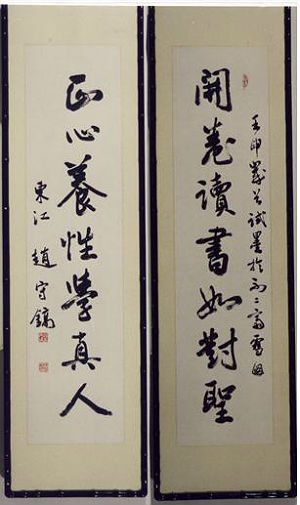 開卷讀書如對聖
壬申歲首試墨於
正心養性學真人
東江 趙守鏑